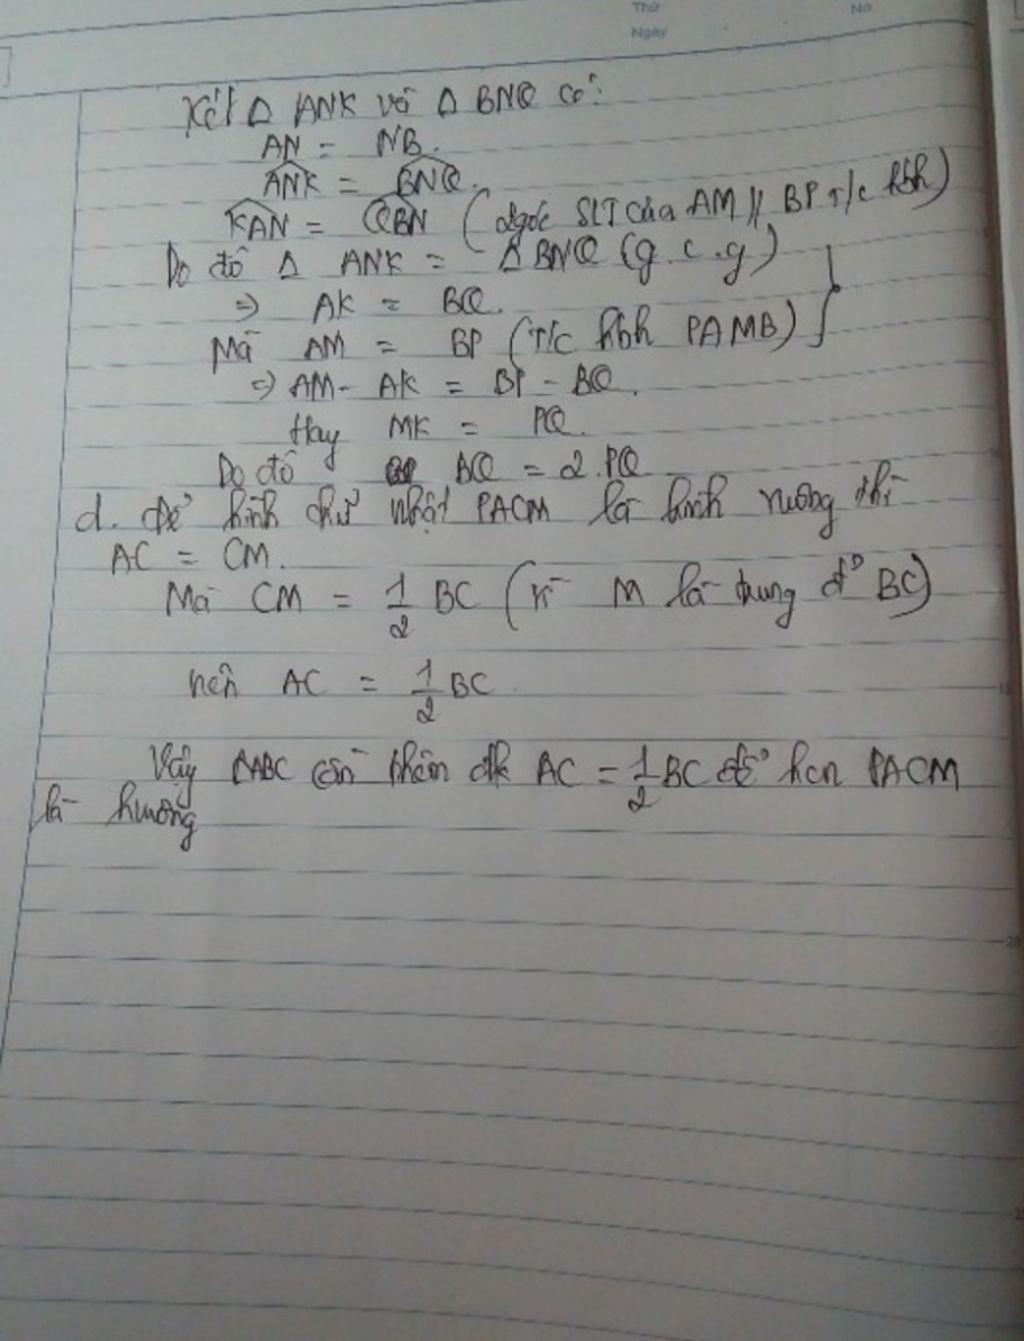 Thứ
No
Ngày
Xét Δ ANK và Δ BNQ có:
AN = NB.
ANK = BNQ.
KAN = QBN (2góc SLT của AM // BP T/c hbh)
Do đó Δ ANK = Δ BNQ (g.c.g)
=> AK = BQ.
Mà AM = BP (T/c hbh PAMB)
=> AM - AK = BP - BQ.
Hay MK = PQ.
Do đó BQ = 2.PQ
d. để hình chữ nhật PACM là hình vuông thì
AC = CM.
Mà CM = 1/2 BC (vì M là trung đ' BC)
nên AC = 1/2 BC
Vậy ΔABC cần thêm đk AC = 1/2 BC để hcn PACM
là hvuông